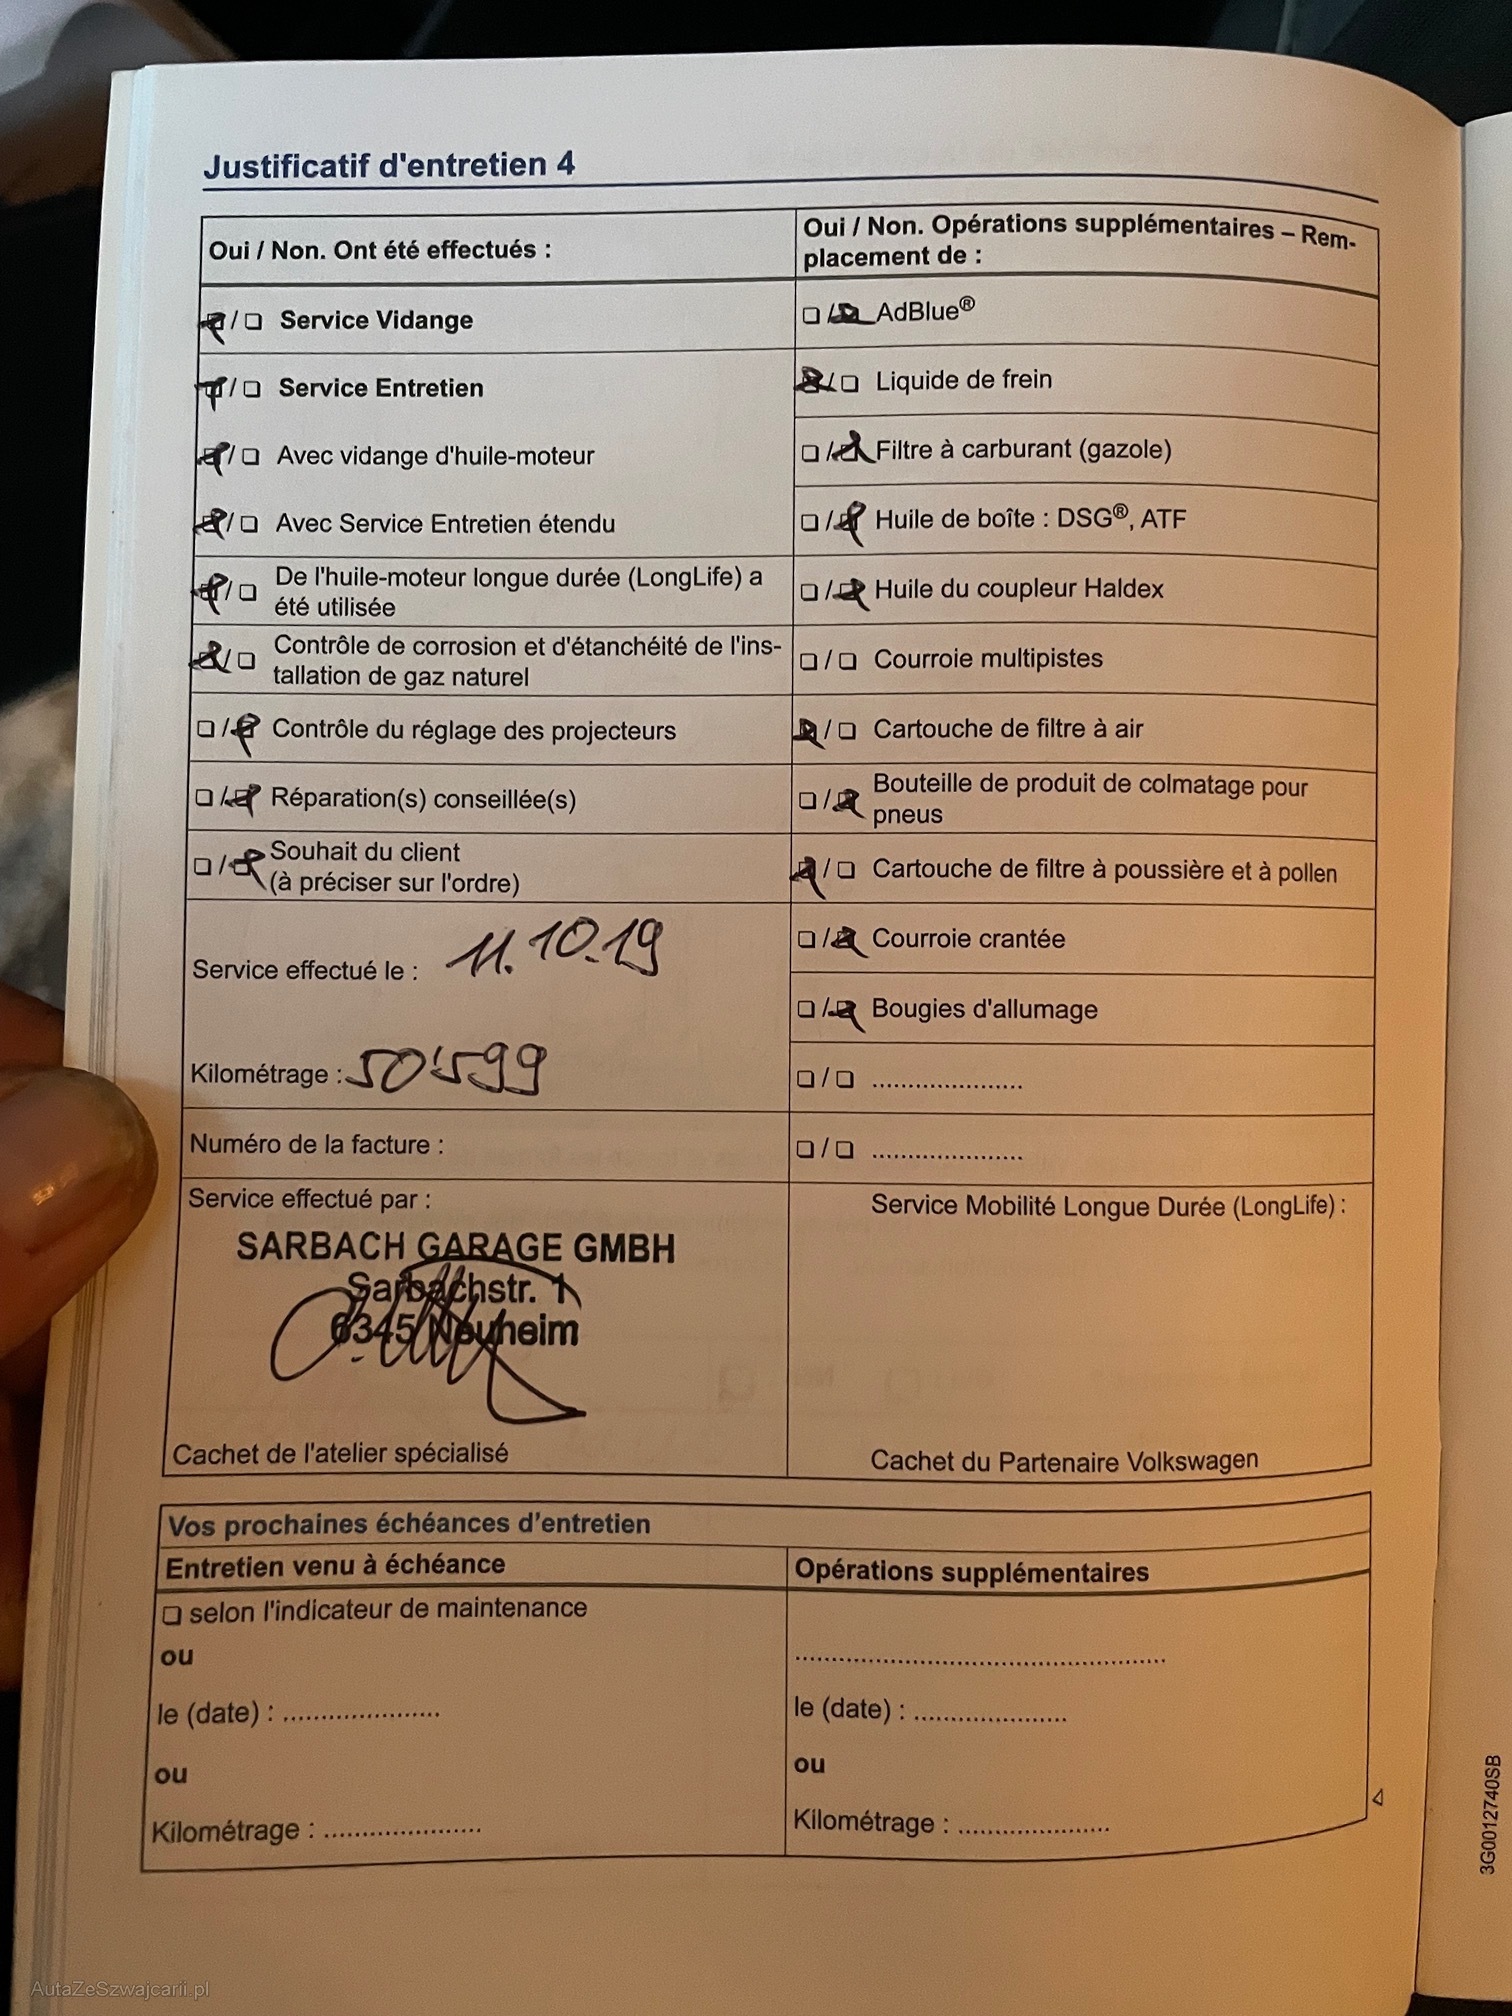 Justificatif d'entretien 4
Oui / Non. Ont été effectués :
Service Vidange
Service Entretien
Avec vidange d'huile-moteur
Avec Service Entretien étendu
De l'huile-moteur longue durée (LongLife) a
été utilisée
Contrôle de corrosion et d'étanchéité de l'ins-
tallation de gaz naturel
Contrôle du réglage des projecteurs
Réparation(s) conseillée(s)
Souhait du client
(à préciser sur l'ordre)
Service effectué le : 11.10.19
Kilométrage : 50'599
Numéro de la facture :
Service effectué par :
SARBACH GARAGE GMBH
Sarbachstr. 1
6345 Neuheim
Cachet de l'atelier spécialisé
Oui / Non. Opérations supplémentaires – Rem-
placement de :
AdBlue®
Liquide de frein
Filtre à carburant (gazole)
Huile de boîte : DSG®, ATF
Huile du coupleur Haldex
Courroie multipistes
Cartouche de filtre à air
Bouteille de produit de colmatage pour
pneus
Cartouche de filtre à poussière et à pollen
Courroie crantée
Bougies d'allumage
Service Mobilité Longue Durée (LongLife) :
Cachet du Partenaire Volkswagen
Vos prochaines échéances d'entretien
Entretien venu à échéance
selon l'indicateur de maintenance
ou
le (date) : ......................
ou
Kilométrage : ......................
Opérations supplémentaires
le (date) : ......................
ou
Kilométrage : ......................
3G0012740SB
AutaZeSzwajcarii.pl